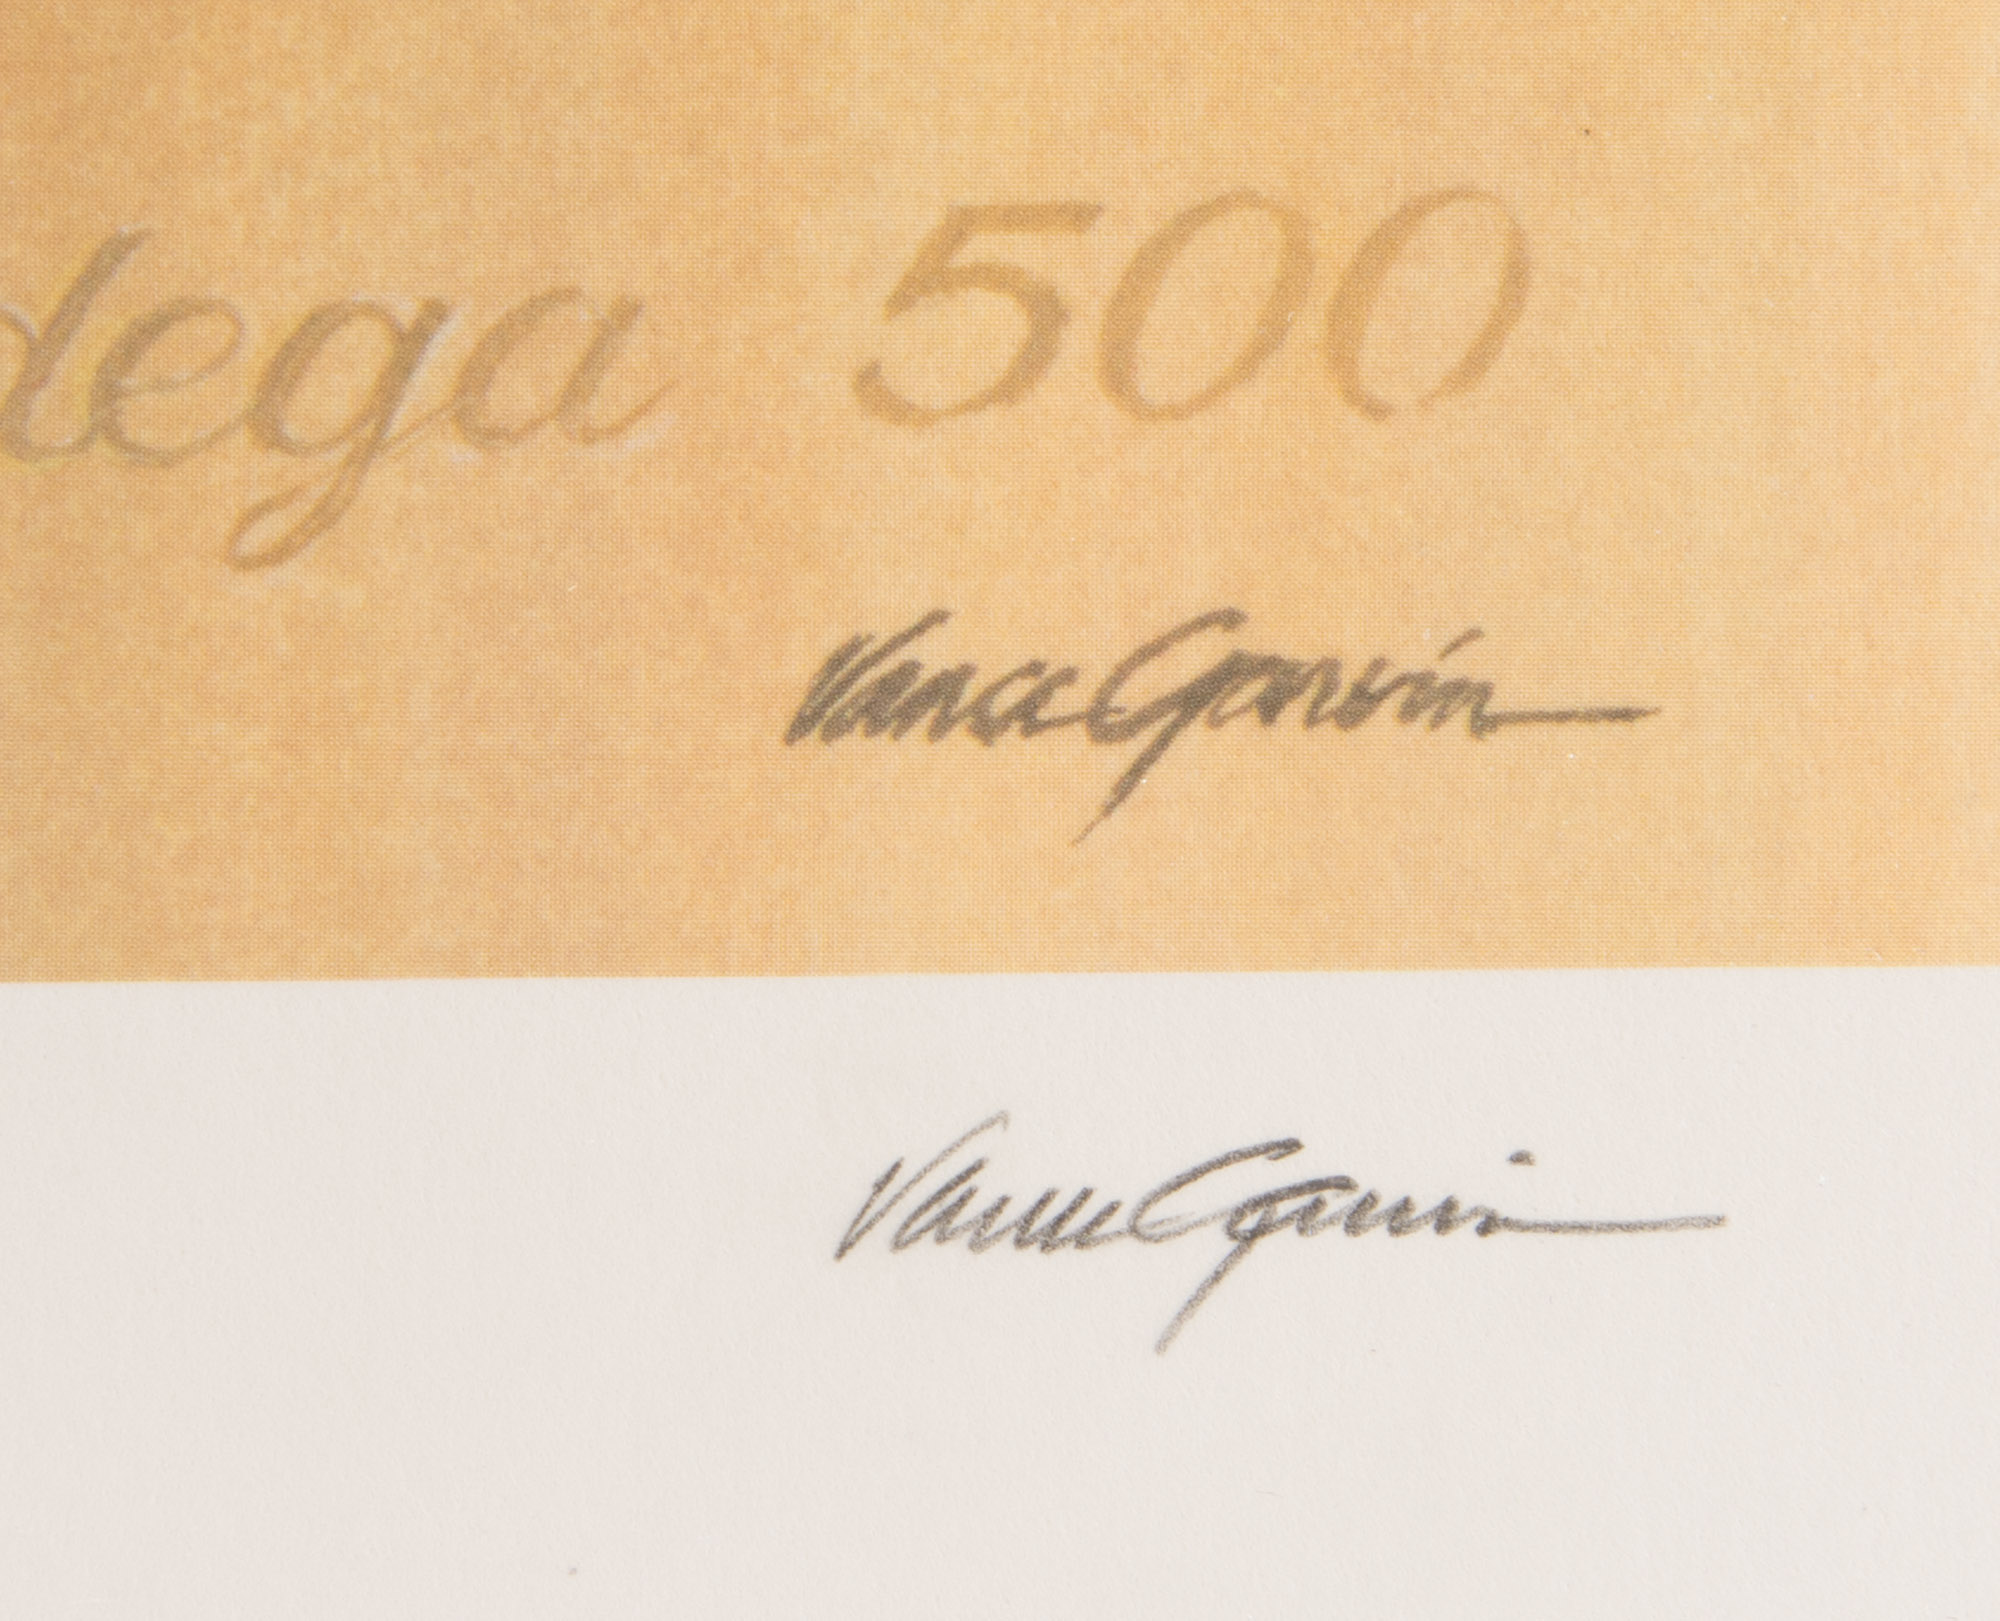 dega 500
Vance Garvin
Vance Garvin